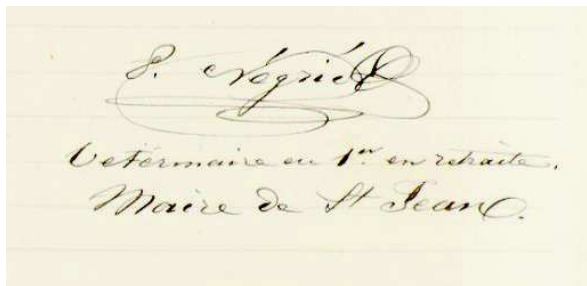 P. Négrié
Vétérinaire en 1er en retraite.
Maire de St Jean.